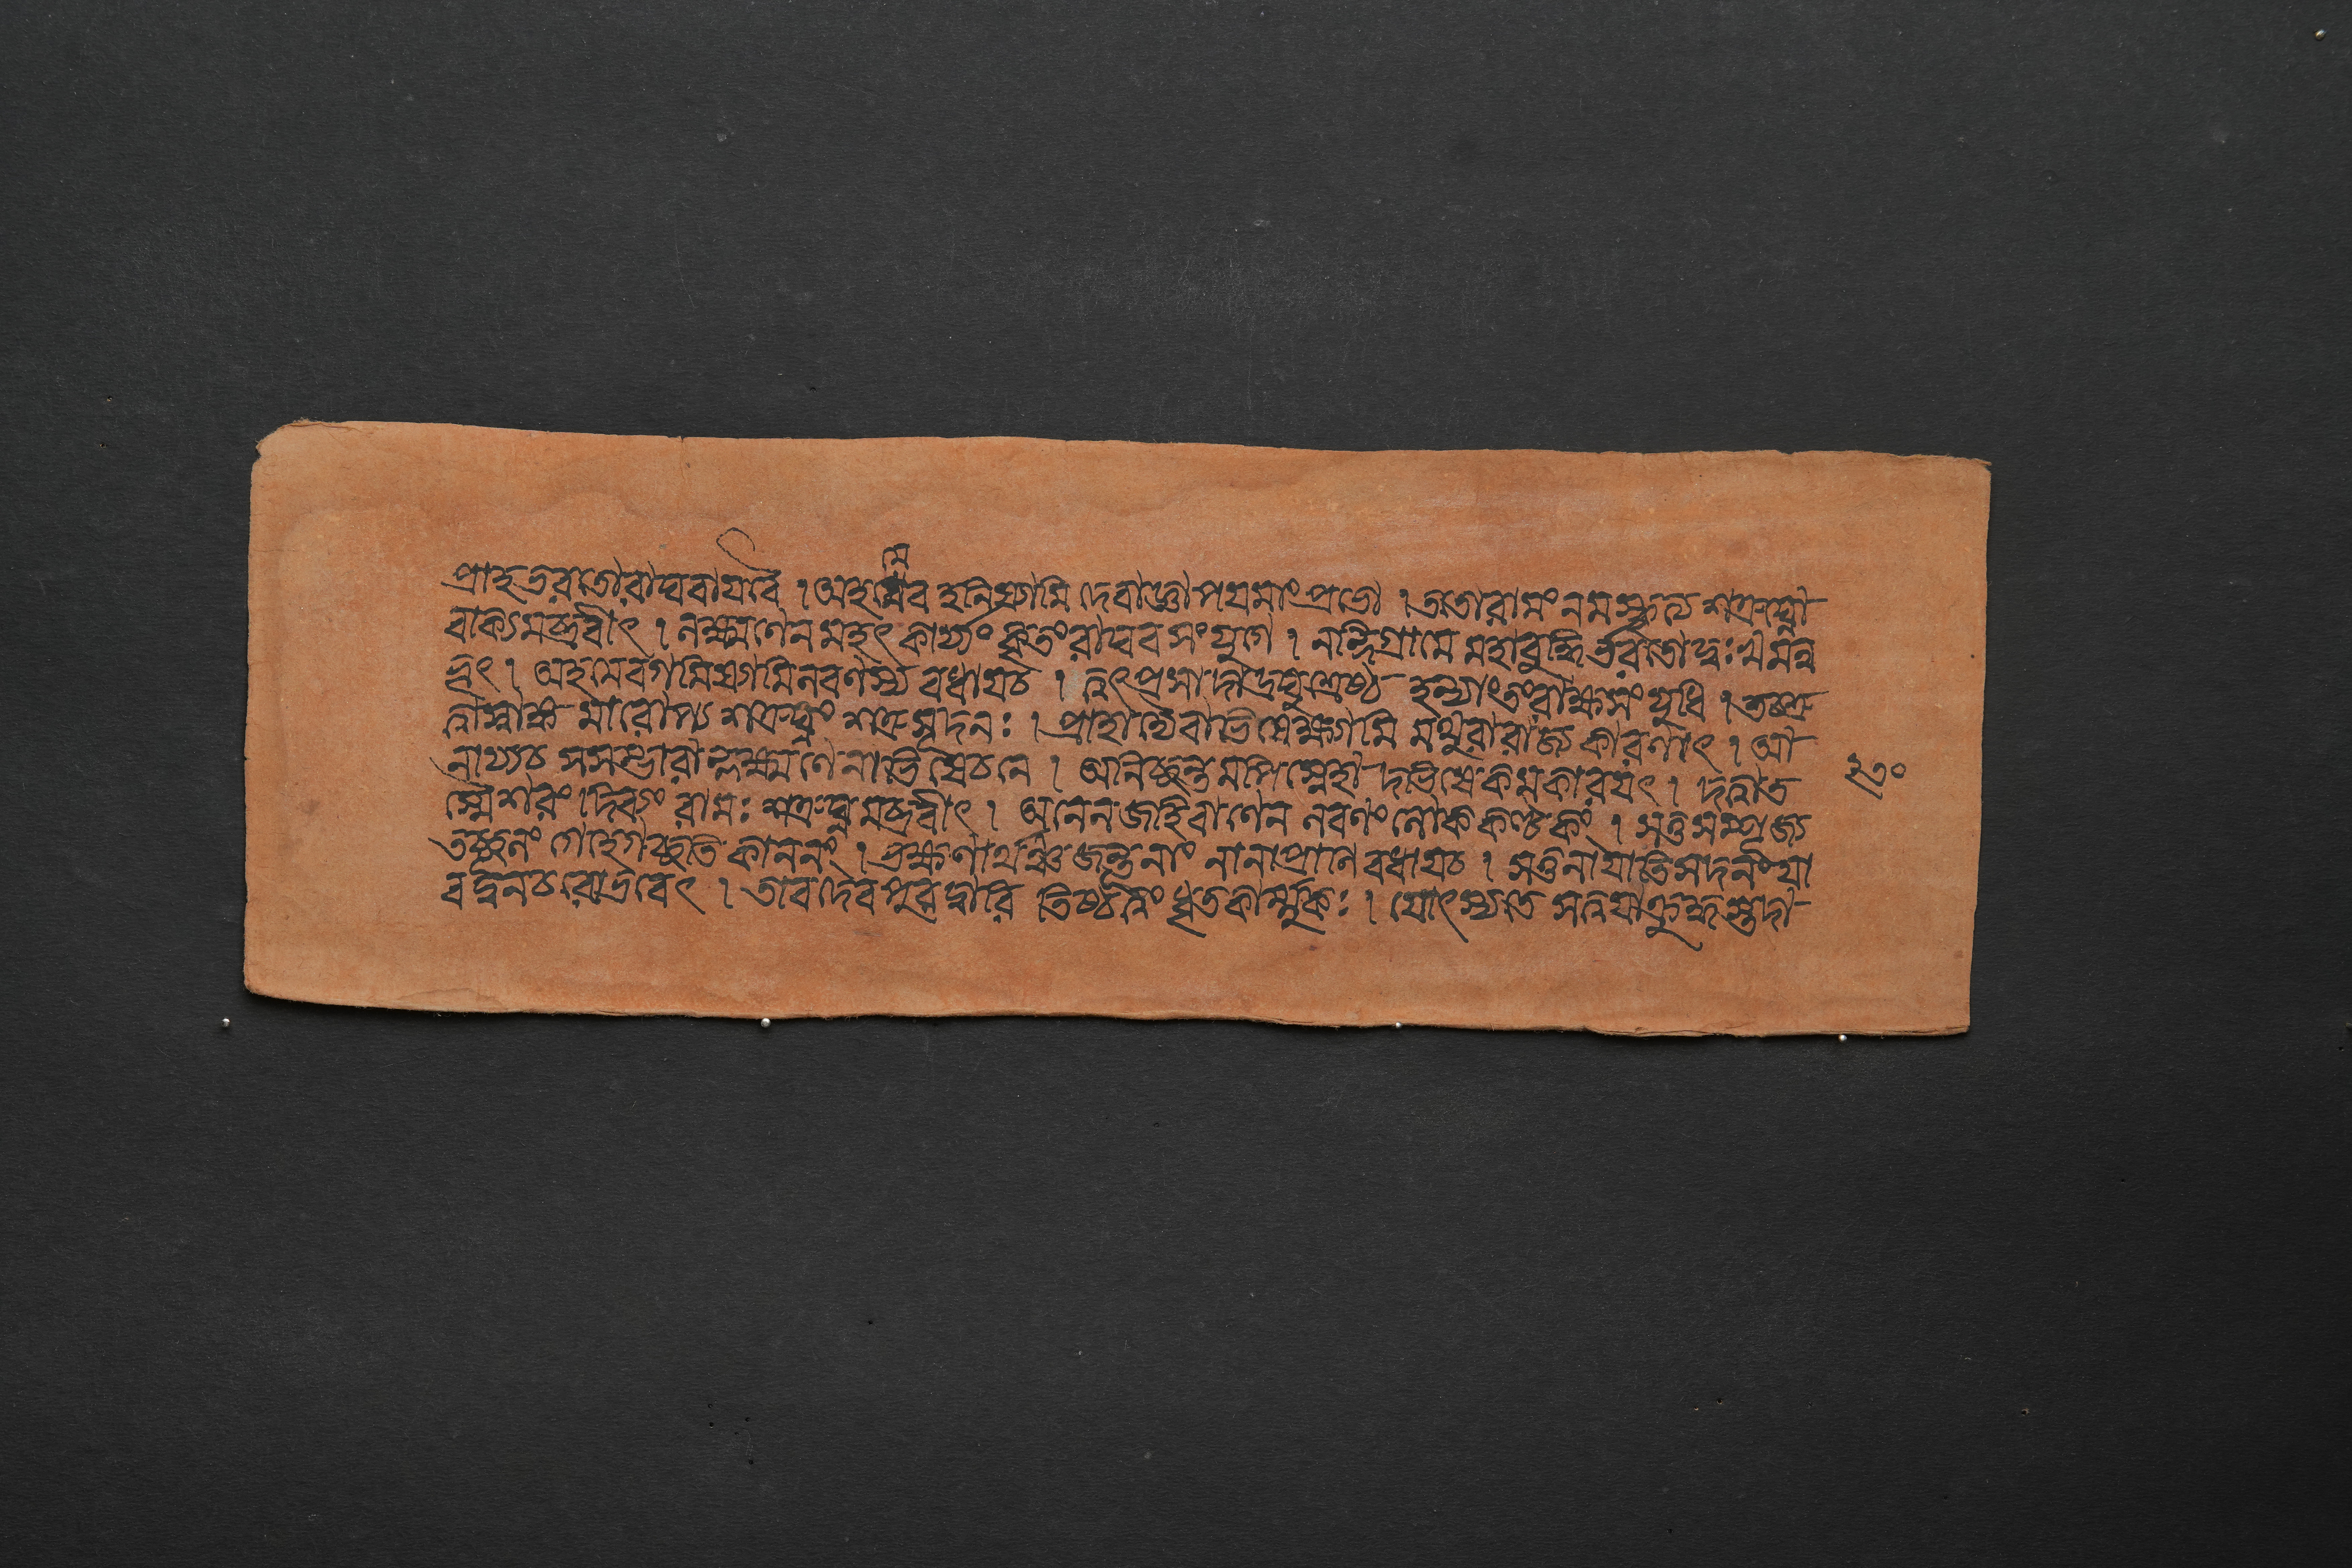 প্রাহ ভরতো রাঘবায বৈ । অহমেব হনিষ্যামি দেবাজ্ঞাপয মাং প্রভো । ততো রামং নমস্কৃত্য শত্রুঘ্নো
বাক্যমব্রবীৎ । লক্ষ্মণেন মহৎ কার্য্যং কৃতং রাঘব সংযুগে । নন্দিগ্রামে মহাবুদ্ধির্ভরতো দুঃখমন্ব
ভূৎ । অহমেব গমিষ্যামি লবণস্য বধায চ । ত্বৎপ্রসাদাদ্রঘুশ্রেষ্ঠ হন্যাং তং রাক্ষসং যুধি । তচ্ছ্রু
ত্বা স্বাঙ্কমারোপ্য শত্রুঘ্নং শত্রুসূদনঃ । প্রাহাদ্যৈবাভিষেক্ষ্যামি মথুরারাজ্যকারণাৎ । আ
নায্য চ সসম্ভারান্লক্ষ্মণেনাভিষেচনে । অনিচ্ছন্তমপি স্নেহাদভিষেকমকারযৎ । দত্বা ত
স্মৈ শরং দিব্যং রামঃ শত্রুঘ্নমব্রবীৎ । অনেন জহি বাণেন লবণং লোককণ্টকং । স তু সম্পূজ্য
তচ্ছূলং গেহে গচ্ছতি কাননং । ভক্ষণার্থঞ্চ জন্তূনাং নানাপ্রাণিবধায চ । স তু নাযাতি সদনং যা
বদ্বনচরো ভবেৎ । তাবদেব পুরদ্বারি তিষ্ঠ ত্বং ধৃতকার্ম্মুকঃ । যোৎস্যতে স ত্বযা ক্রুদ্ধস্তদা